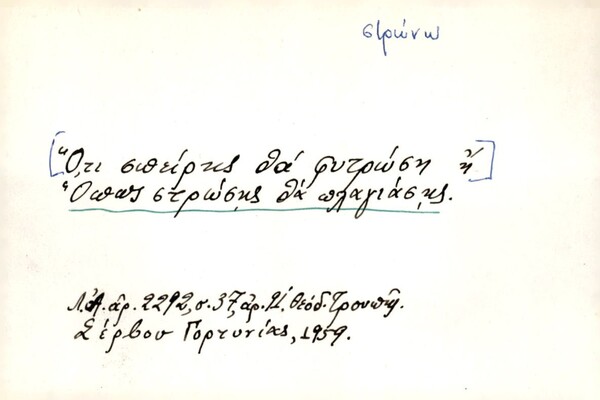 στρώνω
[Ὅ,τι σπείρῃς θά φυτρώση ἤ]
Ὅπως στρώσῃς θά πλαγιάσῃς.
Λ.Ἀ. ἀρ. 2292, σ. 37, ἀρ. Θεόδ. Τρουπῆ.
Σέρβου Γορτυνίας, 1959.